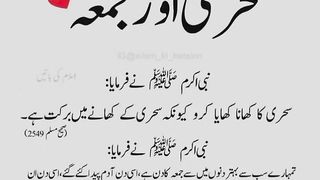 سحری اور جمعہ
اسلام کی باتیں
نبی اکرم ﷺ نے فرمایا:
سحری کا کھانا کھایا کرو کیونکہ سحری کے کھانے میں برکت ہے۔
(صحیح مسلم 2549)
نبی اکرم ﷺ نے فرمایا:
تمہارے سب سے بہتر دنوں میں سے جمعہ کا دن ہے، اسی دن آدم پیدا کئے گئے، اسی دن ان